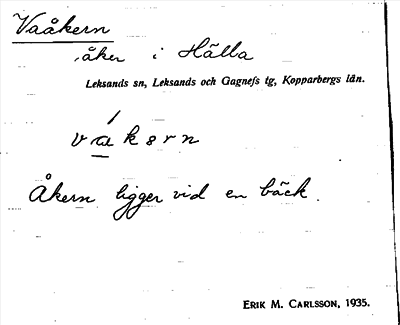 Vaåkern
åker i Hälla
Leksands sn, Leksands och Gagnefs tg, Kopparbergs län.
Åkern ligger vid en bäck.
ERIK M. CARLSSON, 1935.